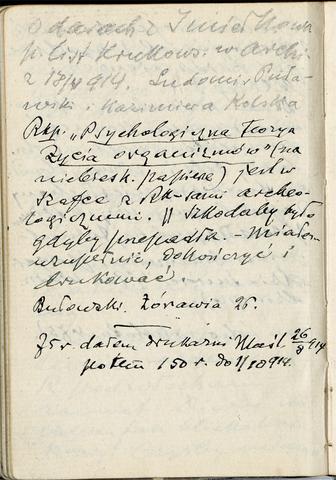 o danach z
p. list Krukows. w Archi-
z 18/V 914. Ludomir
i Kazimiera Kolska
Rkp. „Psychologiczna Teorya
Życia organizmów" (na
niebiesk. papierze) jest w
szafce z rk-sami archeo-
logicznemi. || Szkodaby było
gdyby przepadła. - Miałem
uzupełnić, dokończyć i
drukować.
Butowski. Żórawia 25.
75 r. dałem drukarni 26/8 914
potem 150 r. do 914.